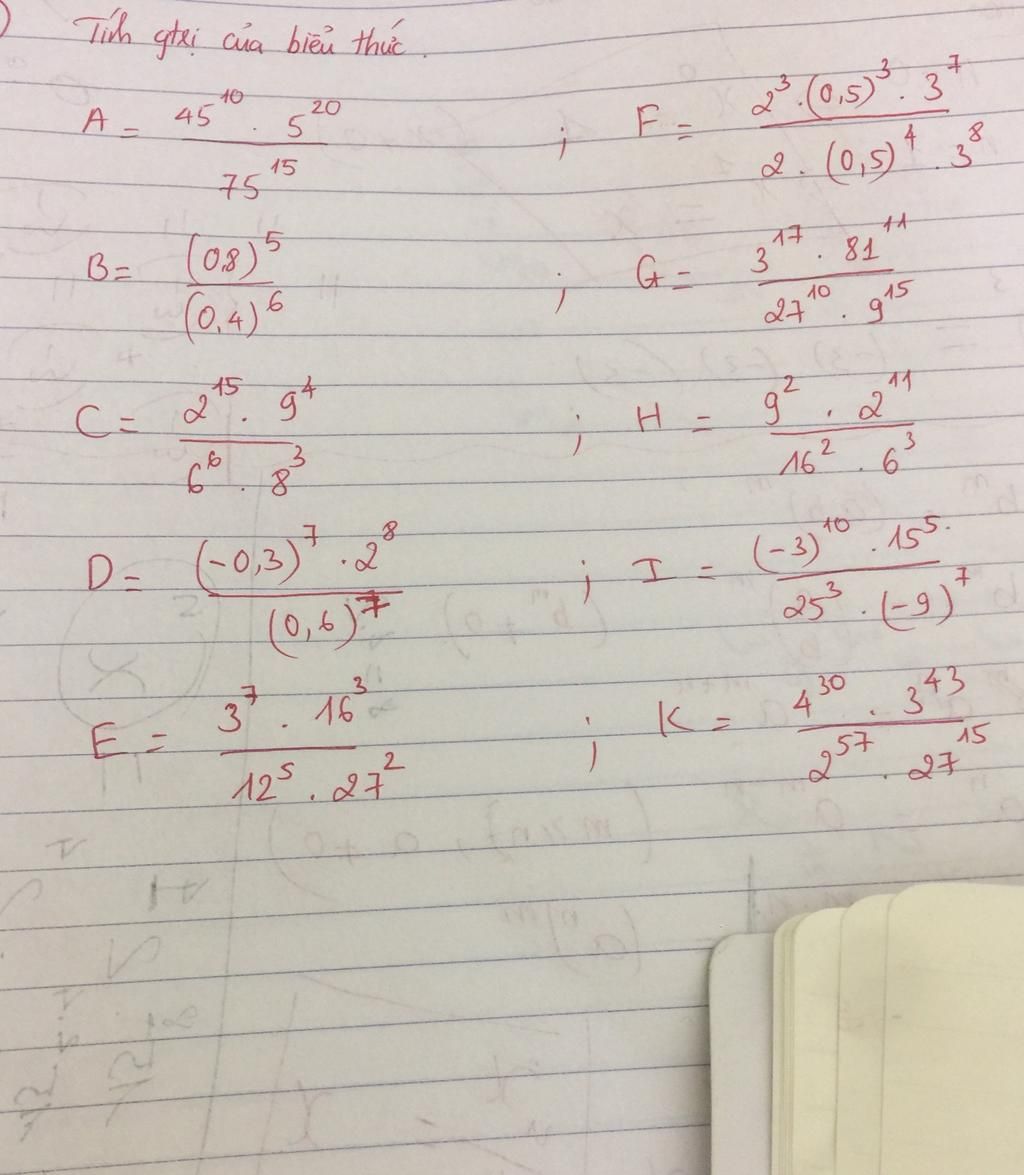 Tính gtrị của biểu thức.
A = \frac{45^{10} . 5^{20}}{75^{15}} ; F = \frac{2^3 . (0,5)^3 . 3^7}{2 . (0,5)^4 . 3^8}
B = \frac{(0,8)^5}{(0,4)^6} ; G = \frac{3^{17} . 81^{11}}{27^{10} . 9^{15}}
C = \frac{2^{15} . 9^4}{6^6 . 8^3} ; H = \frac{9^2 . 2^{11}}{16^2 . 6^3}
D = \frac{(-0,3)^7 . 2^8}{(0,6)^7} ; I = \frac{(-3)^{10} . 15^5}{25^3 . (-9)^7}
E = \frac{3^7 . 16^3}{12^5 . 27^2} ; K = \frac{4^{30} . 3^{43}}{2^{57} . 27^{15}}